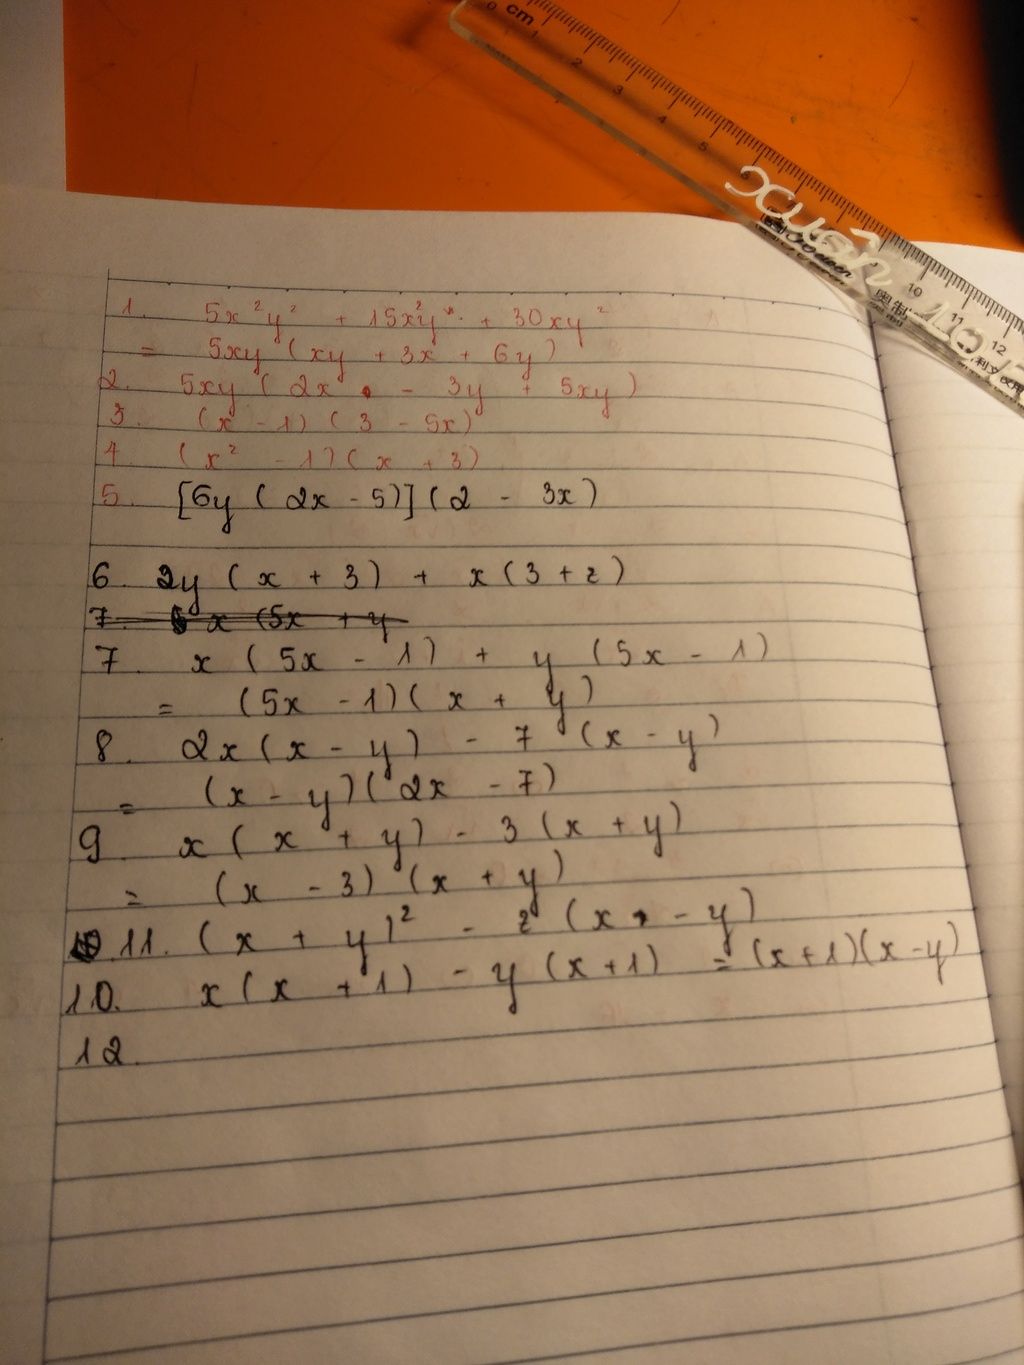 cm
0 1 2 3 4 5 6 10 11 12
xuân 10A
1. 5x²y² + 15x²y + 30xy²
= 5xy (xy + 3x + 6y)
2. 5xy (2x - 3y + 5xy)
3. (x - 1) (3 - 5x)
4. (x² - 1) (x + 3)
5. [6y (2x - 5)] (2 - 3x)
6. 2y (x + 3) + x (3 + z)
7. x (5x + y
7. x (5x - 1) + y (5x - 1)
= (5x - 1) (x + y)
8. 2x (x - y) - 7 (x - y)
= (x - y) (2x - 7)
9. x (x + y) - 3 (x + y)
= (x - 3) (x + y)
11. (x + y)² - z (x - y)
10. x (x + 1) - y (x + 1) = (x + 1) (x - y)
12.